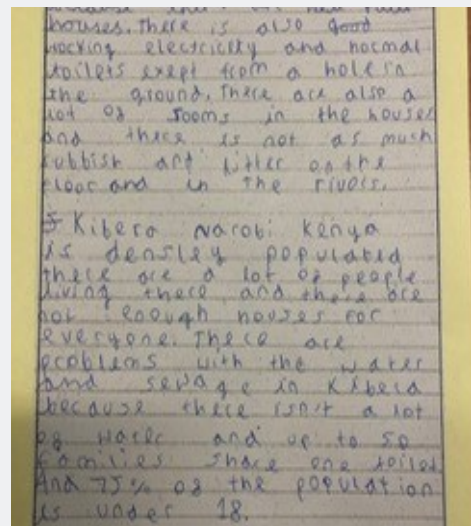 houses. There is also good
working electricity and normal
toilets exept from a hole in
the ground. There are also a
lot of rooms in the houses
and there is not as much
rubbish and litter on the
floor and in the rivers.
Kibera Narobi Kenya
is densley populated
there are a lot of people
living there and there are
not enough houses for
everyone. There are
problems with the water
and sewage in Kibera
because there isn't a lot
of water and up to 50
families share one toilet
And 75% of the population
is under 18.